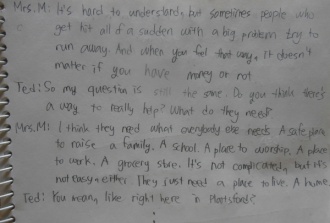 Mrs.M: It's hard to understand, but sometimes people who
get hit all of a sudden with a big problem try to
run away. And when you feel that way, it doesn't
matter if you have money or not
Ted: So my question is still the same. Do you think there's
a way to really help? What do they need?
Mrs.M: I think they need what everybody else needs. A safe place
to raise a family. A school. A place to worship. A place
to work. A grocery store. It's not complicated, but it's
not easy either. They just need a place to live. A home.
Ted: You mean, like right here in